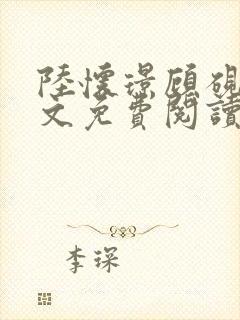 陸懷璟顧硯
文免費閱讀
李琛